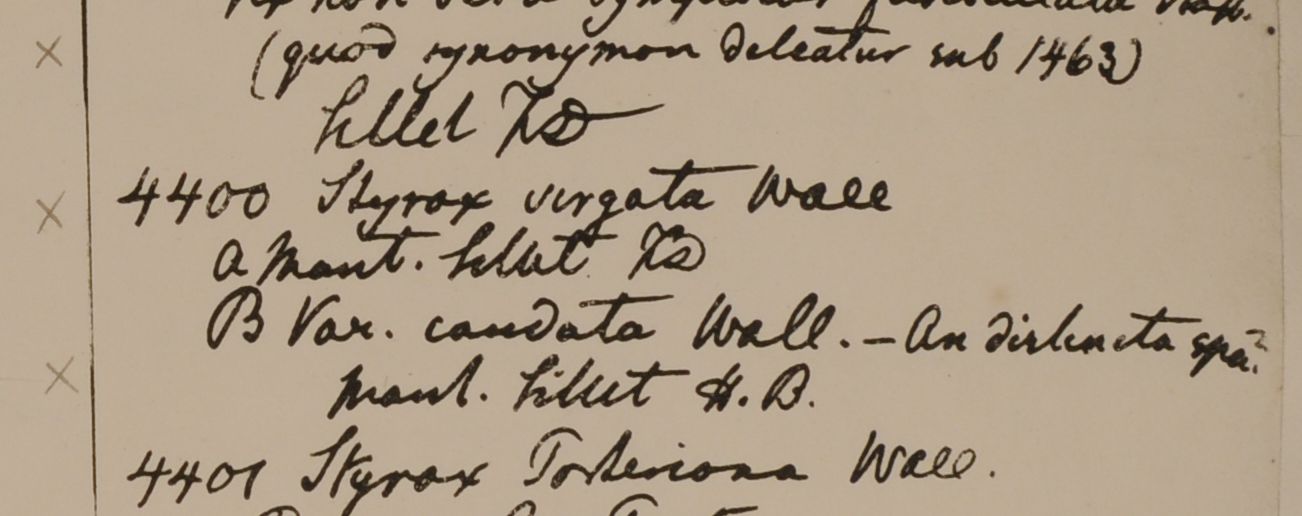 (quod synonymon deleatur sub 1463)
Sillet
4400 Styrax virgata Wall
A Mont. Sillet
B Var. caudata Wall. — An distincta spa?
Mont. Sillet H. B.
4401 Styrax Porteriana Wall.